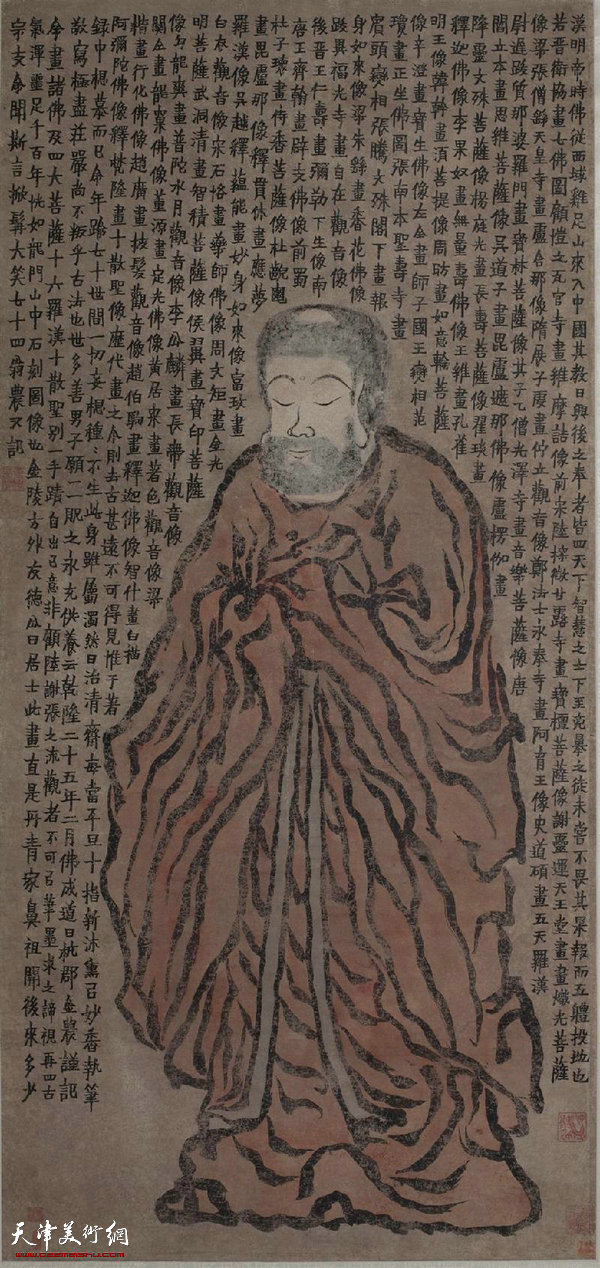 漢明帝時佛從西域雞足山來入中國其教日興後之奉者皆四天下智慧之士下至兇暴之徒未嘗不畏其果報而五體投地也
若晉衛協畫七佛圖顧愷之瓦官寺畫維摩詰像前宋陸探微甘露寺畫寶檀菩薩像謝靈運天王堂畫畫熾光菩薩
像梁張僧繇天皇寺畫盧舍那像隋展子虔畫佇立觀音像鄭法士永奉寺畫阿育王像史道碩畫五天羅漢
尉遲跋質那婆羅門畫寶林菩薩像其子乙僧光澤寺畫音樂菩薩像唐
閻立本畫思維菩薩像吳道子畫毘盧遮那佛像盧楞伽畫
降靈文殊菩薩像楊庭光畫長壽菩薩像翟琰畫
釋迦佛像李果奴畫無量壽佛像王維畫孔雀
明王像韓幹畫須菩提像周昉畫如意輪菩薩
像辛澄畫寶生佛像左全畫師子國王變相范
瓊畫正坐佛圖張南本聖壽寺畫
賓頭變相張騰文殊閣下畫報
身如來像梁朱繇畫香花佛像
跋異福光寺畫自在觀音像
後晉王仁壽畫彌勒下生像南
唐王齊翰畫辟支佛像前蜀
杜子瓌畫侍香菩薩像杜齯龜
畫毘盧那像釋貫休畫應夢
羅漢像吳越釋蘊能畫妙身如來像富玫畫
白衣觀音像宋石恪畫藥師佛像周文矩畫金光
明菩薩武洞清畫智積菩薩像侯翼畫寶印菩薩
像勾龍爽畫普陀水月觀音像李公麟畫長帶觀音像
關仝畫龍窠佛像董源畫定光佛像黃居寀畫著色觀音像梁
楷畫行化佛像趙廣畫披髮觀音像趙伯駒畫釋迦佛像智什畫白描
阿彌陀佛像釋梵隆畫十散聖像歷代畫之今則去古甚遠不可得見惟于著
錄中想慕而已今年踰七十世間一切妄想種種不生此身雖屬濁然日治清齋每當平旦十指新沐熏以妙香執筆
敬寫極盡莊嚴尚不叛乎古法也世多善男子願二眼之永充供養云乾隆二十五年二月佛成道日杭郡金農謹記
余畫諸佛及四大菩薩十六羅漢十散聖別一手蹟自出己意非顧陸謝張之流觀者不可以筆墨求之諦視再四古
氣渾噩足千百年恍如龍門山中石刻圖像也金陵方外友德山曰居士此畫直是丹青家鼻祖開後來多少
宗支余聞斯言掀髯大笑七十四翁農又記
天津美術網
www.022meishu.com